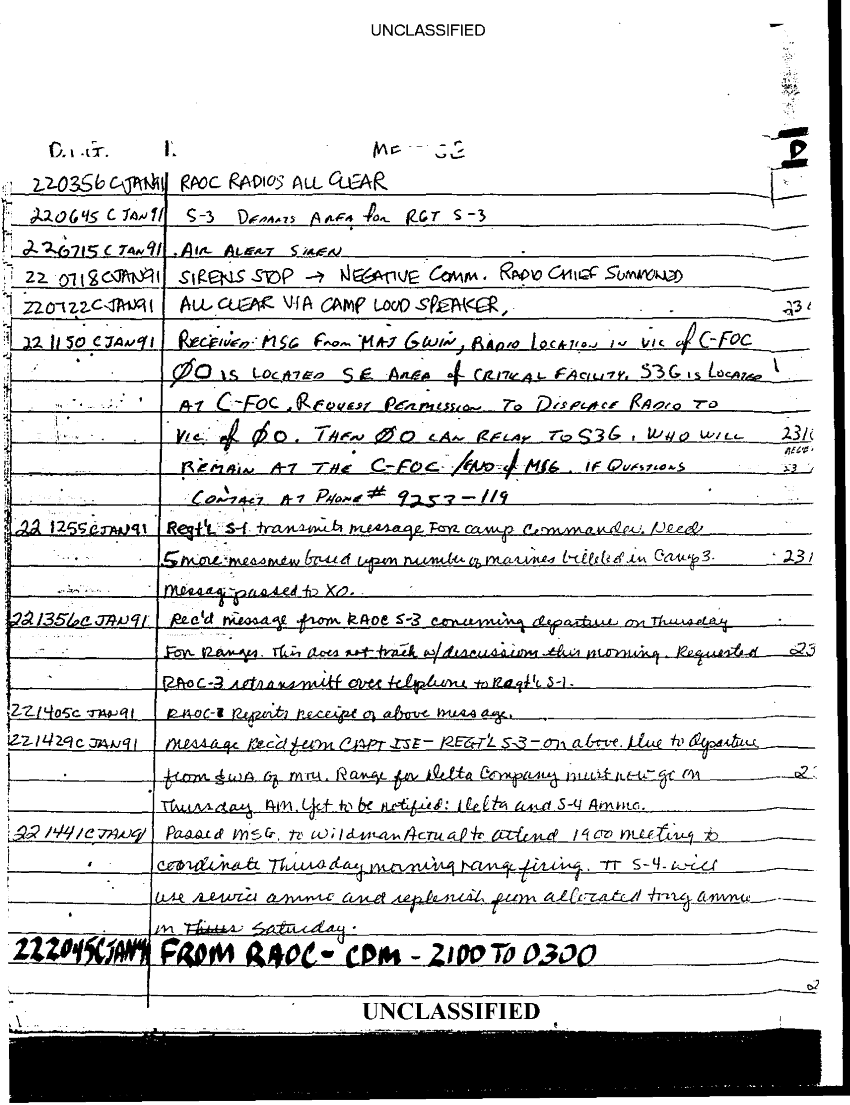 UNCLASSIFIED
220356 C JAN91 RAOC RADIOS ALL CLEAR
220645 C JAN91 S-3 DEPARTS AREA for RGT S-3
220715 C JAN91 AIR ALERT SIREN
22 0718 C JAN91 SIRENS STOP → NEGATIVE COMM. RADIO CHIEF SUMMONED
220722 C JAN91 ALL CLEAR VIA CAMP LOUD SPEAKER,
221150 C JAN91 RECEIVED MSG FROM MAJ GWIN, RADIO LOCATION IN VIC of C-FOC
ØO IS LOCATED SE AREA of CRITICAL FACILITY. S3G IS LOCATED
AT C-FOC. REQUEST PERMISSION TO DISPLACE RADIO TO
VIC. of ØO. THEN ØO CAN RELAY TO S3G, WHO WILL
REMAIN AT THE C-FOC /END of MSG. IF QUESTIONS
CONTACT AT PHONE # 9253-119
22 1255 C JAN91 Regt'l S-1 transmits message For camp Commander. Need
5 more messmen based upon number of marines billeted in Camp 3.
Message passed to XO.
221356 C JAN91 Rec'd message from RAOC S-3 concerning departure on Thursday
For Ranges. This does not track w/discussions this morning. Requested
RAOC-3 retransmitt over telphone to Regt'l S-1.
221405 C JAN91 RAOC-3 Reports receipt of above message.
221429 C JAN91 Message Rec'd from CAPT ISE - REGT'L S-3 - on above. Due to departure
from SWA of Range for Delta Company must now go on
Thursday AM. Yet to be notified: Delta and S-4 Ammo.
22 1441 C JAN91 Passed MSG. to Wildman Actual to attend 1900 meeting to
coordinate Thursday morning range firing. S-4 will
use service ammo and replenish from allocated trng ammo
in Thurs Saturday.
222045 C JAN91 FROM RAOC - CDM - 2100 TO 0300
UNCLASSIFIED